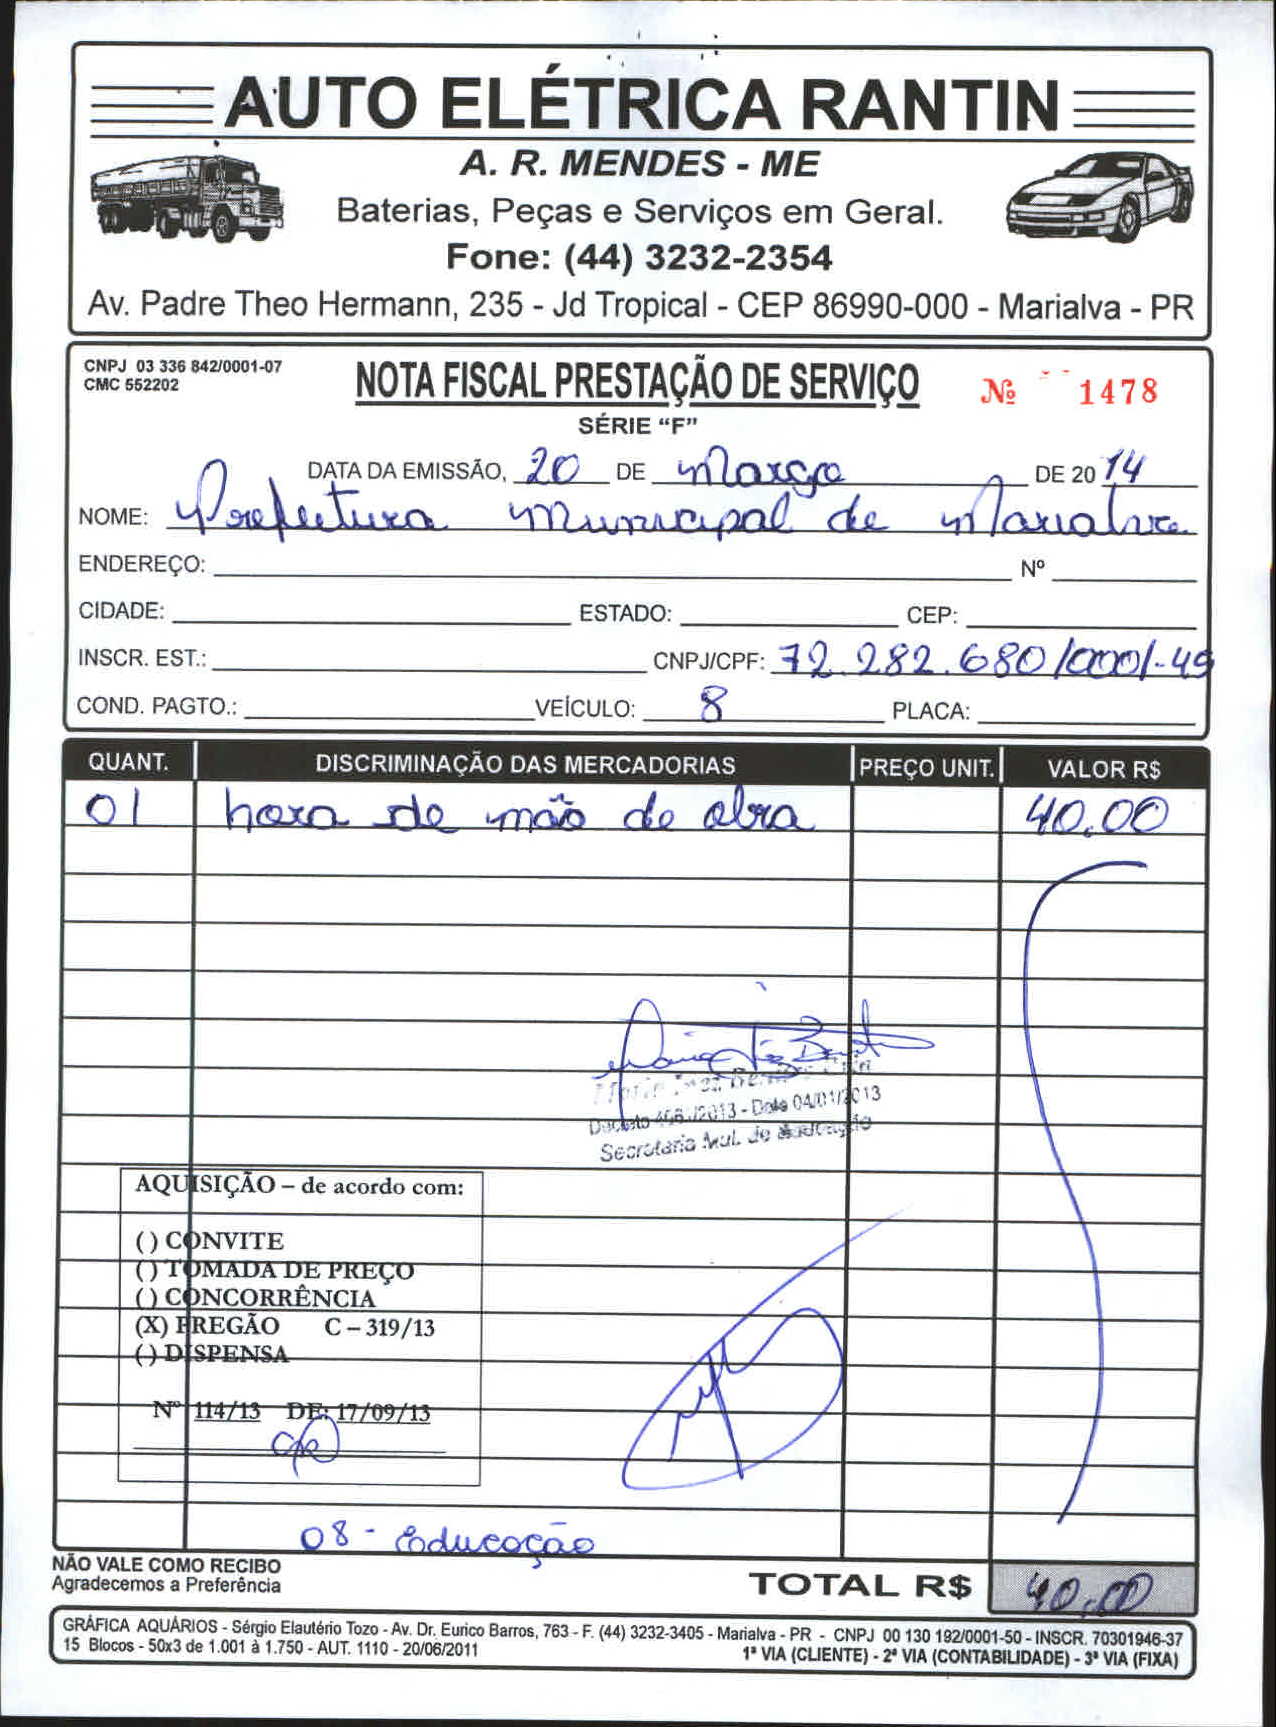 AUTO ELÉTRICA RANTIN
A. R. MENDES - ME
Baterias, Peças e Serviços em Geral.
Fone: (44) 3232-2354
Av. Padre Theo Hermann, 235 - Jd Tropical - CEP 86990-000 - Marialva - PR
CNPJ 03 336 842/0001-07
CMC 552202
NOTA FISCAL PRESTAÇÃO DE SERVIÇO
Nº 1478
SÉRIE “F”
DATA DA EMISSÃO, 20 DE Março DE 20 14
NOME: Prefeitura Municipal de Marialva
ENDEREÇO: Nº
CIDADE: ESTADO: CEP:
INSCR. EST.: CNPJ/CPF: 72.282.680/0001-49
COND. PAGTO.: VEÍCULO: 8 PLACA:
QUANT. DISCRIMINAÇÃO DAS MERCADORIAS PREÇO UNIT. VALOR R$
01 hora de mão de obra 40,00
/2013 - Data 04/01/2013
Secretaria Mul. de Educação
AQUISIÇÃO – de acordo com:
( ) CONVITE
( ) TOMADA DE PREÇO
( ) CONCORRÊNCIA
(X) PREGÃO C – 319/13
( ) DISPENSA
Nº 114/13 DE: 17/09/13
08 - Educação
NÃO VALE COMO RECIBO
Agradecemos a Preferência
TOTAL R$ 40,00
GRÁFICA AQUÁRIOS - Sérgio Elautério Tozo - Av. Dr. Eurico Barros, 763 - F. (44) 3232-3405 - Marialva - PR - CNPJ 00 130 192/0001-50 - INSCR. 70301946-37
15 Blocos - 50x3 de 1.001 à 1.750 - AUT. 1110 - 20/06/2011
1ª VIA (CLIENTE) - 2ª VIA (CONTABILIDADE) - 3ª VIA (FIXA)